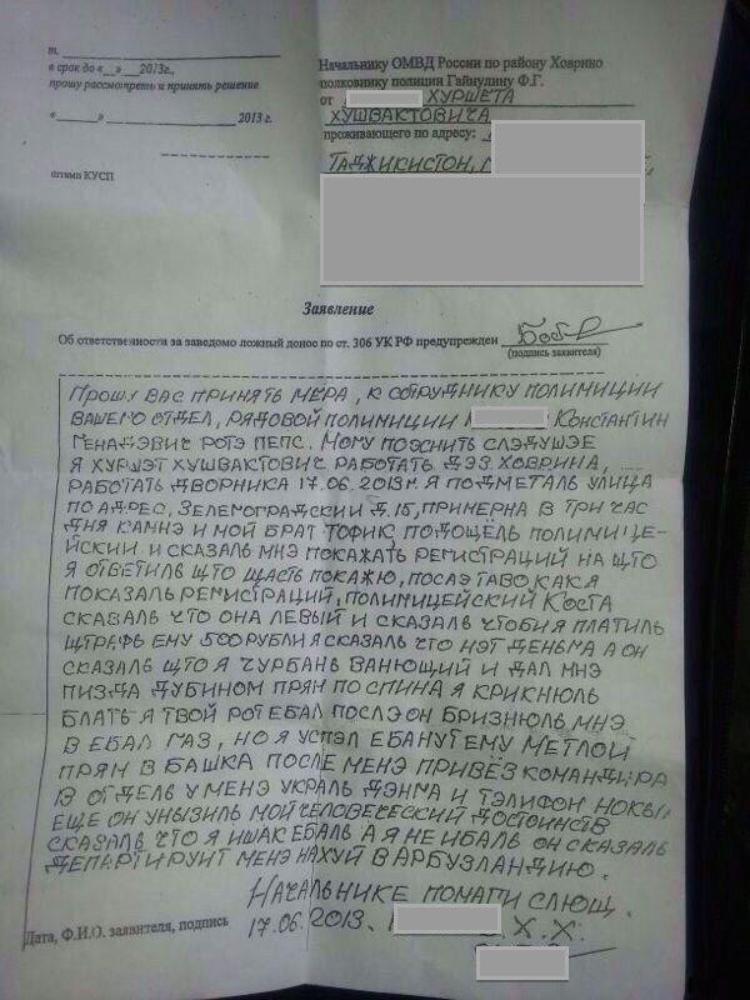 т.
в срок до «__»___2013г.,
прошу рассмотреть и принять решение
«______» 2013 г.
штамп КУСП
Начальнику ОМВД России по району Ховрино
полковнику полиции Гайнулину Ф.Г.
от ХУРШЕТА
ХУШВАКТОВИЧА
проживающего по адресу:
ТАДЖИКИСТОН,
Заявление
Об ответственности за заведомо ложный донос по ст. 306 УК РФ предупрежден
(подпись заявителя)
ПРОШУ ВАС ПРИНЯТЬ МЕРА, К СОТРУДНИКУ ПОЛИМИЦИИ
ВАШЕГО ОТДЕЛ, РЯДОВОЙ ПОЛИМИЦИИ КОНСТАНТИН
ГЕНАДЭВИЧ РОТЭ ПЕПС. МОМУ ПОЭСНИТЬ СЛЭДУШЭЕ
Я ХУРШЭТ ХУШВАКТОВИЧ РАБОТАТЬ ДЭЗ ХОВРИНА,
РАБОТАТЬ ДВОРНИКА 17.06.2013г. Я ПОДМЕТАЛЬ УЛИЦА
ПО АДРЕС. ЗЕЛЕМОГРАДСКИЙ Д.15, ПРИМЕРНА В ТРИ ЧАС
ДНЯ КАМНЭ И МОЙ БРАТ ТОФИК, ПОДОЩЁЛЬ ПОЛИМИЦЕ-
ЙСКИЙ И СКАЗАЛЬ МНЭ ПОКАЖАТЬ РЕГИСТРАЦИЙ НА ЩТО
Я ОТВЕТИЛЬ ЩТО ЩАСТЬ ПОКАЖЮ, ПОСЛЭ ТАВО, КАК Я
ПОКАЗАЛЬ РЕГИСТРАЦИЙ, ПОЛИМИЦЕЙСКИЙ КОСТА
СКАЗАЛЬ ЧТО ОНА ЛЕВЫЙ И СКАЗАЛЬ ЧТОБИ Я ПЛАТИЛЬ
ЩТРАФЬ ЕМУ 500 РУБЛИ Я СКАЗАЛЬ ЧТО НЭТ ДЕНЬГА А ОН
СКАЗАЛЬ ЩТО Я ЧУРБАНЬ ВАНЮЮЩИЙ И ДАЛ МНЭ
ПИЗДА ДУБИНОМ ПРЯМ ПО СПИНА Я КРИКНЮЛЬ
БЛАТЬ Я ТВОЙ РОТ ЕБАЛ ПОСЛЭ ОН БРИЗНЮЛЬ МНЭ
В ЕБАЛ ГАЗ, НО Я УСПЭЛ ЕБАНУТ ЕМУ МЕТЛОЙ
ПРЯМ В БАШКА ПОСЛЕ МЕНЭ ПРИВЁЗ КОМАНДИРА
В ОТДЕЛЬ У МЕНЭ УКРАЛЬ ДЭНГА И ТЭЛИФОН НОКЫ
ЕЩЕ ОН УНЫЗИЛЬ МОЙ ЧЕЛОВЕЧЕСКИЙ ДОСТОИНСТВ
СКАЗАЛЬ ЧТО Я ИШАК ЕБАЛЬ А Я НЕ ИБАЛЬ ОН СКАЗАЛЬ
ДЕПАРТИРУИТ МЕНЭ НАХУЙ В АРБУЗЛАНДИЮ.
НАЧАЛЬНИКЕ ПОМАГИ СЛЮЩ.
Дата, Ф.И.О. заявителя, подпись 17.06.2013. Х.Х.